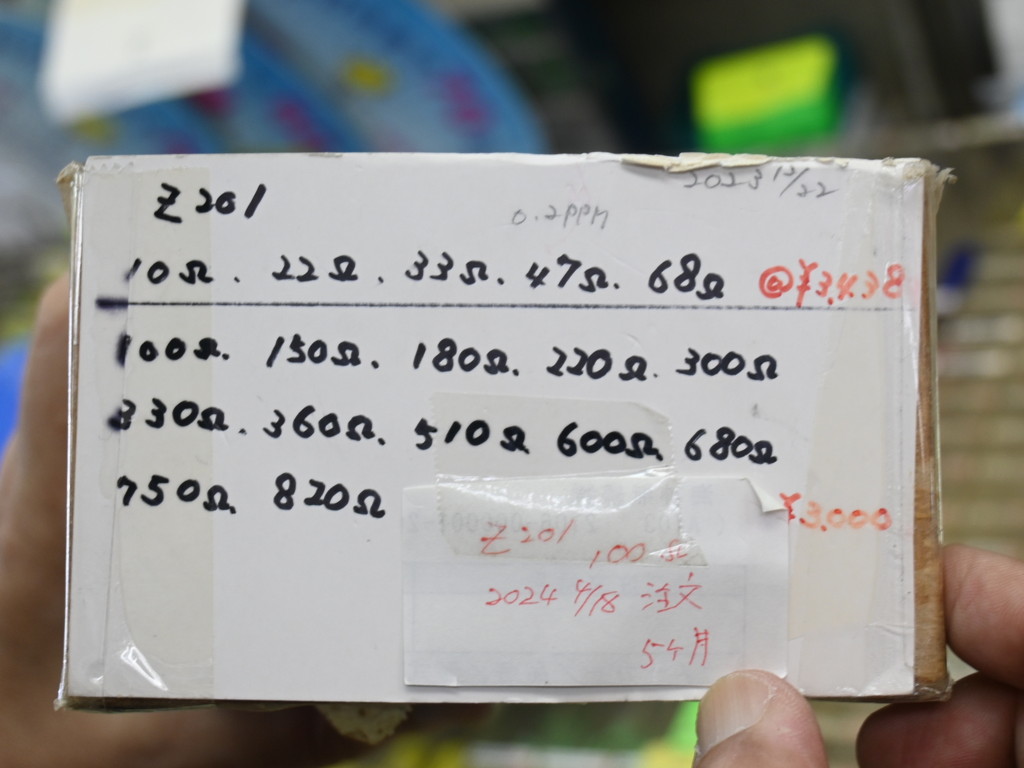 2023 12/22
Z201
0.2PPM
10Ω. 22Ω. 33Ω. 47Ω. 68Ω @¥3,438
100Ω. 150Ω. 180Ω. 220Ω. 300Ω
330Ω. 360Ω. 510Ω 600Ω. 680Ω
750Ω. 820Ω
¥3,000
Z201
100Ω
2024 4/18 注文
5ケ月